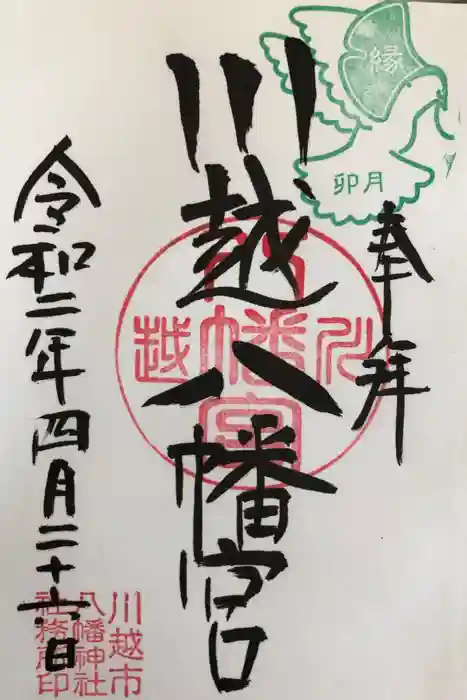 縁
卯月
奉拝
川越八幡宮
川越
八幡宮
令和二年四月二十六日
川越市
八幡神社
社務所印